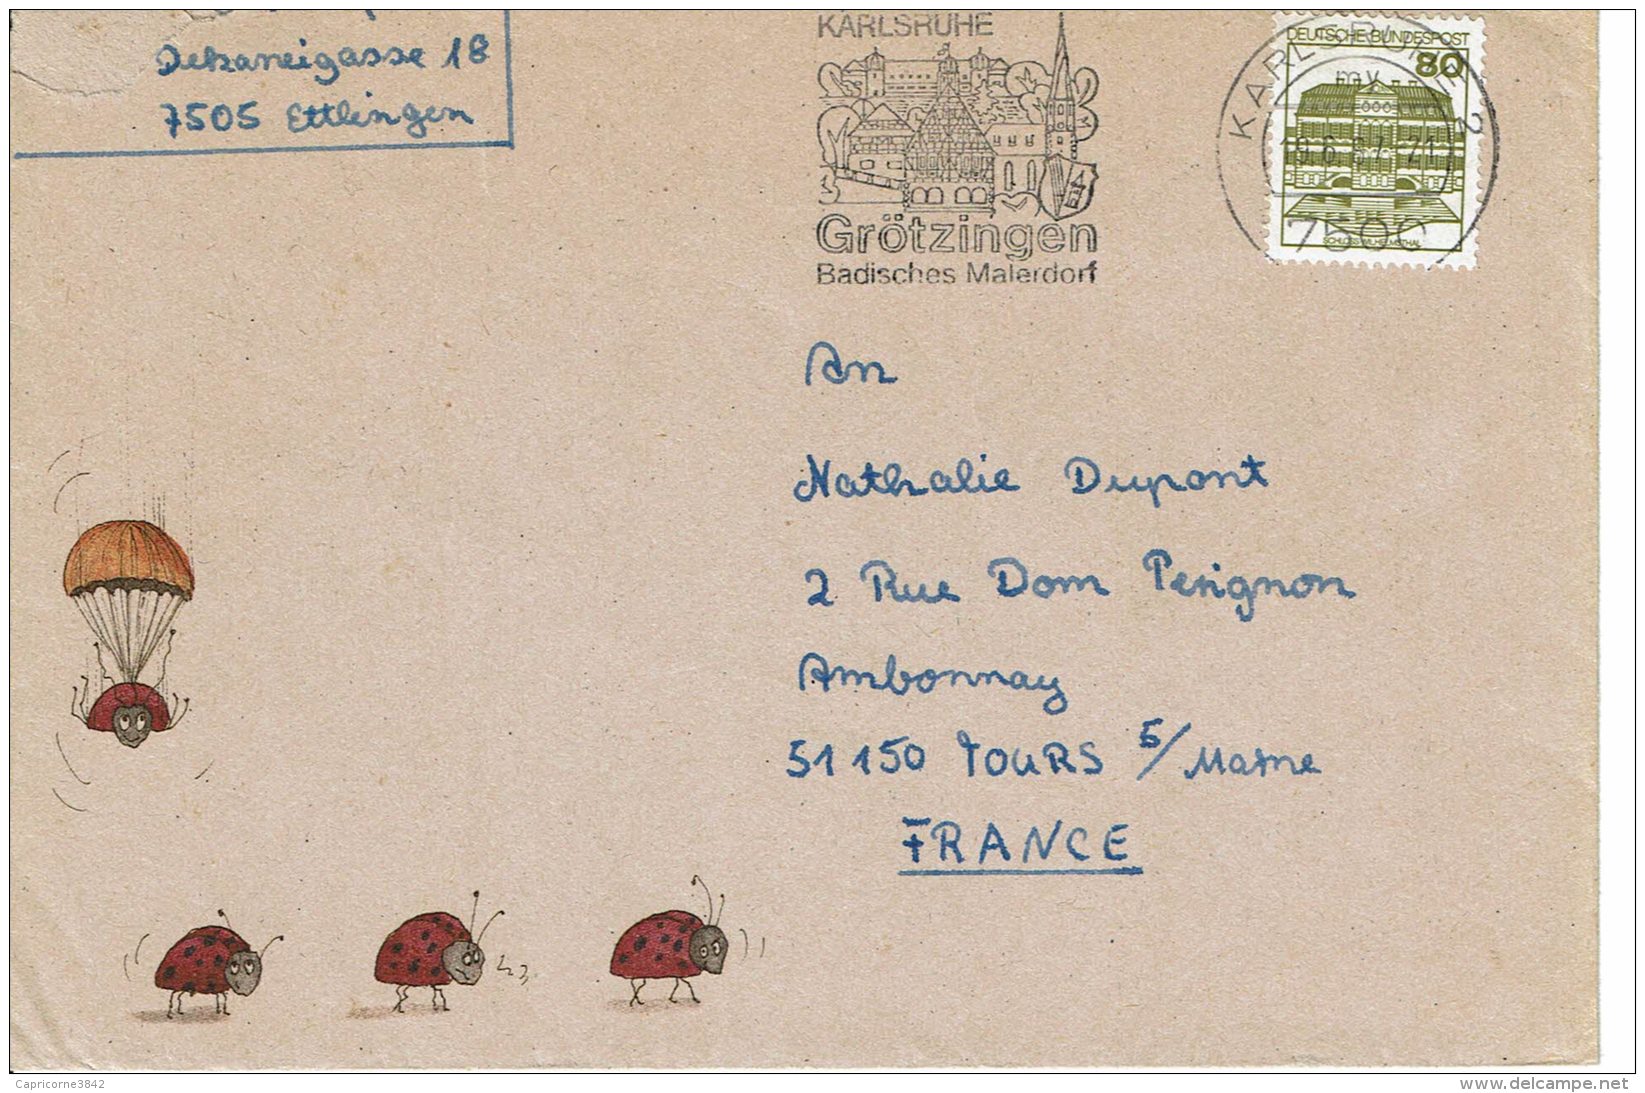 Dekaneigasse 18
7505 Ettlingen
KARLSRUHE
Grötzingen
Badisches Malerdorf
KARLSRUHE 2
7500
DEUTSCHE BUNDESPOST
80
SCHLOSS WILHELMSTHAL
An
Nathalie Dupont
2 Rue Dom Perignon
Ambonnay
51150 TOURS S/Marne
FRANCE
Capricorne3842
www.delcampe.net